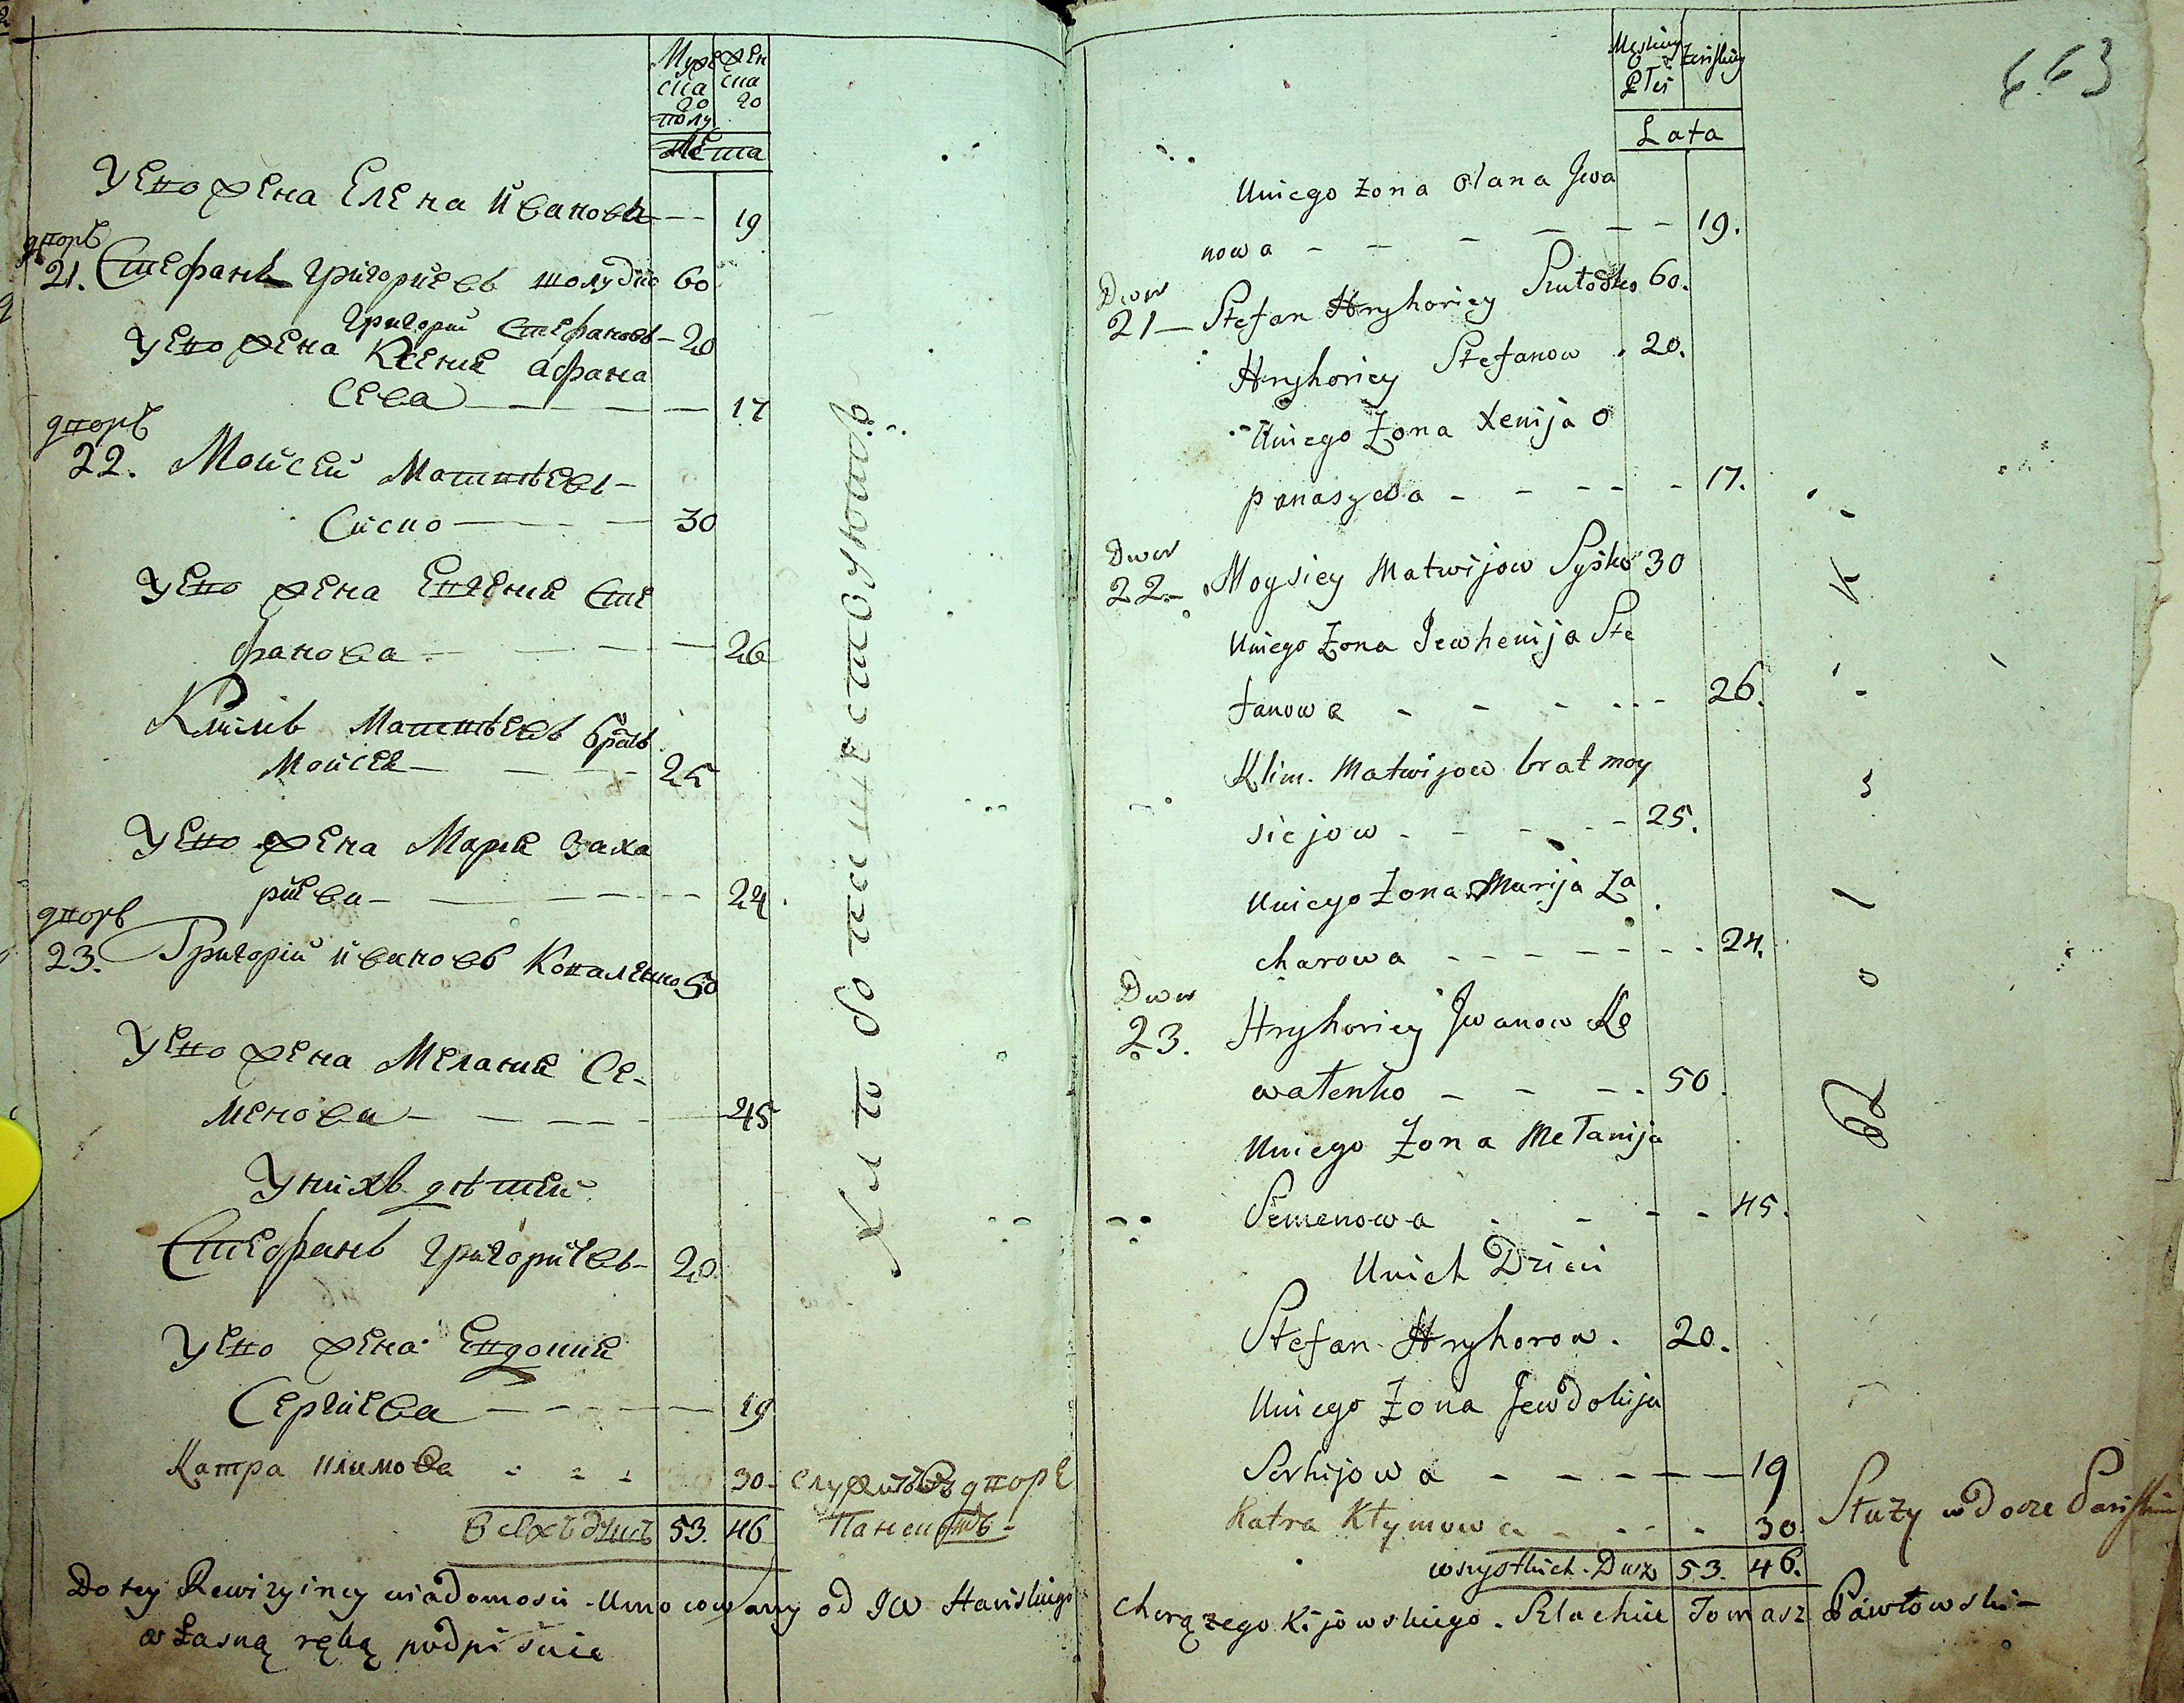 Муже
ска
го
полу
жен
ска
го
Лета
Уево жена Елена Иванова 19
дворъ
21. Стефанъ Григориевъ Шолудко 60
Григорий Стефановъ 20
Уево жена Ксения Афана
сева 17
дворъ
22. Мойсей Матвѣевъ
Сиско 30
Уево жена Евгения Сте
фанова 26
Климъ Матвѣевъ братъ
Мойсея 25
Уево жена Мария Заха
риева 24
дворъ
23. Григорий Ивановъ Коваленко 50
Уево жена Мелания Се-
менова 45
Унихъ дѣтей
Стефанъ Григориевъ 20
Уево жена Евдокия
Сергиева 19
Катра Климова 30 служитъ въ дворѣ
Панскомъ
всѣхъ душъ 53. 46
Męskiey
Płci
Żeńskiey
Lata
663
Uniego Żona Olana Jwa
nowa 19.
Dwor
21 Stefan Hryhoriey Szułodko 60.
Hryhoriey Stefanow 20.
Uniego Żona Xenija O
panasywa 17.
Dwor
22 Moysiey Matwijow Syśko 30
Uniego Żona Jewhenija Ste
fanowa 26.
Klim Matwijow brat moy
siejow 25.
Uniego Żona Marija Za
charowa 24.
Dwor
23. Hryhoriey Jwanow Ko
walenko 50.
Uniego Żona Mełanija
Semenowa 45.
Unich Dzieci
Stefan Hryhorow 20.
Uniego Żona Jewdokija
Serhijowa 19
Katra Kłymowa 30 Służy w Dorze Pańskim
wszystkich Dusz 53. 46.
Do tey Rewizyiney wiadomości Umocowany od JW Hańskiego Chorążego Kijowskiego. Szlachcic Tomasz Pawłowski
własną ręką podpisuie